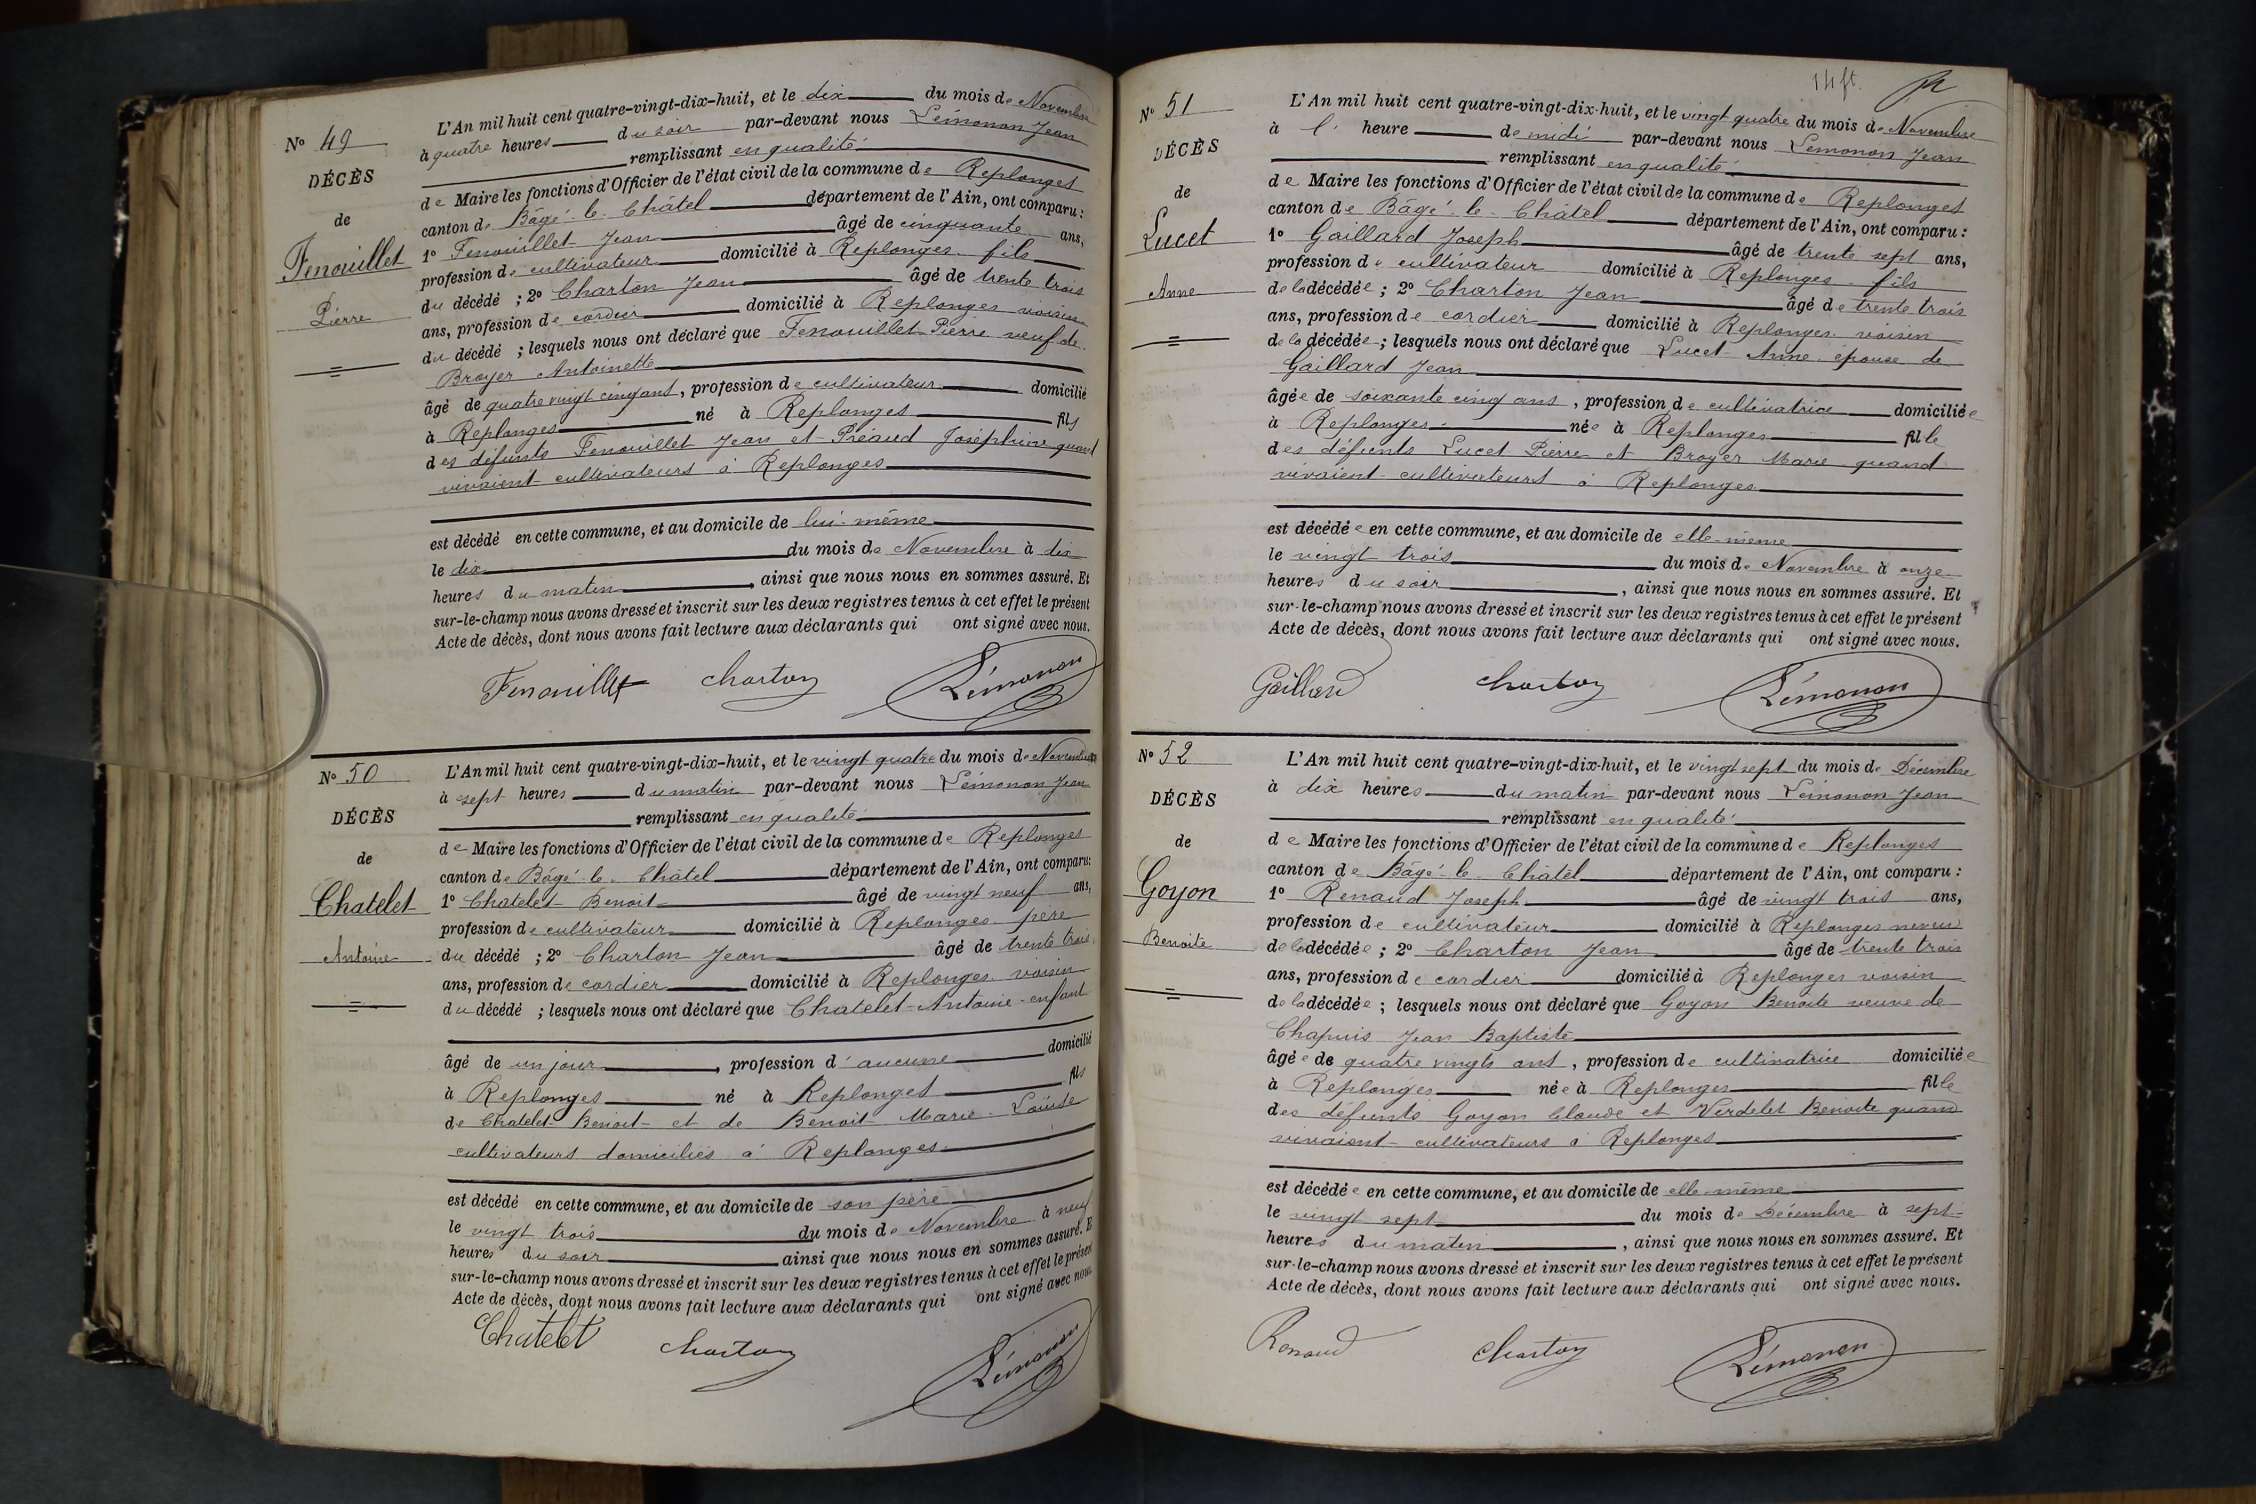 L'An mil huit cent quatre-vingt-dix-huit, et le dix du mois de Novembre
N° 49
à quatre heures du soir par-devant nous Lémonon Jean
remplissant en qualité
DÉCÈS
de Maire les fonctions d'Officier de l'état civil de la commune de Replonges
de
canton de Bâgé-le-Châtel département de l'Ain, ont comparu :
Fenouillet
1° Fenouillet Jean âgé de cinquante ans,
profession de cultivateur domicilié à Replonges fils
Pierre
du décédé ; 2° Charton Jean âgé de trente trois
ans, profession de cordier domicilié à Replonges voisin
du décédé ; lesquels nous ont déclaré que Fenouillet Pierre veuf de
Broyer Antoinette
âgé de quatre vingt cinq ans, profession de cultivateur domicilié
à Replonges né à Replonges fils
des défunts Fenouillet Jean et Préaud Joséphine quand
vivaient cultivateurs à Replonges
est décédé en cette commune, et au domicile de lui-même
le dix du mois de Novembre à dix
heures du matin, ainsi que nous nous en sommes assuré. Et
sur-le-champ nous avons dressé et inscrit sur les deux registres tenus à cet effet le présent
Acte de décès, dont nous avons fait lecture aux déclarants qui ont signé avec nous.
Fenouillet Charton Lémonon
L'An mil huit cent quatre-vingt-dix-huit, et le vingt quatre du mois de Novembre
N° 50
à sept heures du matin par-devant nous Lémonon Jean
remplissant en qualité
DÉCÈS
de Maire les fonctions d'Officier de l'état civil de la commune de Replonges
de
canton de Bâgé-le-Châtel département de l'Ain, ont comparu :
Chatelet
1° Chatelet Benoit âgé de vingt neuf ans,
profession de cultivateur domicilié à Replonges père
Antoine
du décédé ; 2° Charton Jean âgé de trente trois
ans, profession de cordier domicilié à Replonges voisin
du décédé ; lesquels nous ont déclaré que Chatelet Antoine enfant
âgé de un jour, profession d'aucune domicilié
à Replonges né à Replonges fils
de Chatelet Benoit et de Benoit Marie Louise
cultivateurs domiciliés à Replonges
est décédé en cette commune, et au domicile de son père
le vingt trois du mois de Novembre à neuf
heures du soir ainsi que nous nous en sommes assuré. E
sur-le-champ nous avons dressé et inscrit sur les deux registres tenus à cet effet le présent
Acte de décès, dont nous avons fait lecture aux déclarants qui ont signé avec nous.
Chatelet Charton Lémonon
L'An mil huit cent quatre-vingt-dix-huit, et le vingt quatre du mois de Novembre
N° 51
à l' heure de midi par-devant nous Lémonon Jean
remplissant en qualité
DÉCÈS
de Maire les fonctions d'Officier de l'état civil de la commune de Replonges
de
canton de Bâgé-le-Châtel département de l'Ain, ont comparu :
Lucet
1° Gaillard Joseph âgé de trente sept ans,
profession de cultivateur domicilié à Replonges fils
Anne
de la décédée ; 2° Charton Jean âgé de trente trois
ans, profession de cordier domicilié à Replonges voisin
de la décédée ; lesquels nous ont déclaré que Lucet Anne épouse de
Gaillard Jean
âgée de soixante cinq ans, profession de cultivatrice domiciliée
à Replonges née à Replonges fille
des défunts Lucet Pierre et Broyer Marie quand
vivaient cultivateurs à Replonges
est décédée en cette commune, et au domicile de elle-même
le vingt trois du mois de Novembre à onze
heures du soir, ainsi que nous nous en sommes assuré. Et
sur-le-champ nous avons dressé et inscrit sur les deux registres tenus à cet effet le présent
Acte de décès, dont nous avons fait lecture aux déclarants qui ont signé avec nous.
Gaillard Charton Lémonon
L'An mil huit cent quatre-vingt-dix-huit, et le vingt sept du mois de Décembre
N° 52
à dix heures du matin par-devant nous Lémonon Jean
remplissant en qualité
DÉCÈS
de Maire les fonctions d'Officier de l'état civil de la commune de Replonges
de
canton de Bâgé-le-Châtel département de l'Ain, ont comparu :
Goyon
1° Renaud Joseph âgé de vingt trois ans,
profession de cultivateur domicilié à Replonges neveu
Benoite
de la décédée ; 2° Charton Jean âgé de trente trois
ans, profession de cordier domicilié à Replonges voisin
de la décédée ; lesquels nous ont déclaré que Goyon Benoite veuve de
Chapuis Jean Baptiste
âgée de quatre vingts ans, profession de cultivatrice domiciliée
à Replonges née à Replonges fille
des défunts Goyon Claude et Verdelet Benoite quand
vivaient cultivateurs à Replonges
est décédée en cette commune, et au domicile de elle-même
le vingt sept du mois de Décembre à sept
heures du matin, ainsi que nous nous en sommes assuré. Et
sur-le-champ nous avons dressé et inscrit sur les deux registres tenus à cet effet le présent
Acte de décès, dont nous avons fait lecture aux déclarants qui ont signé avec nous.
Renaud Charton Lémonon